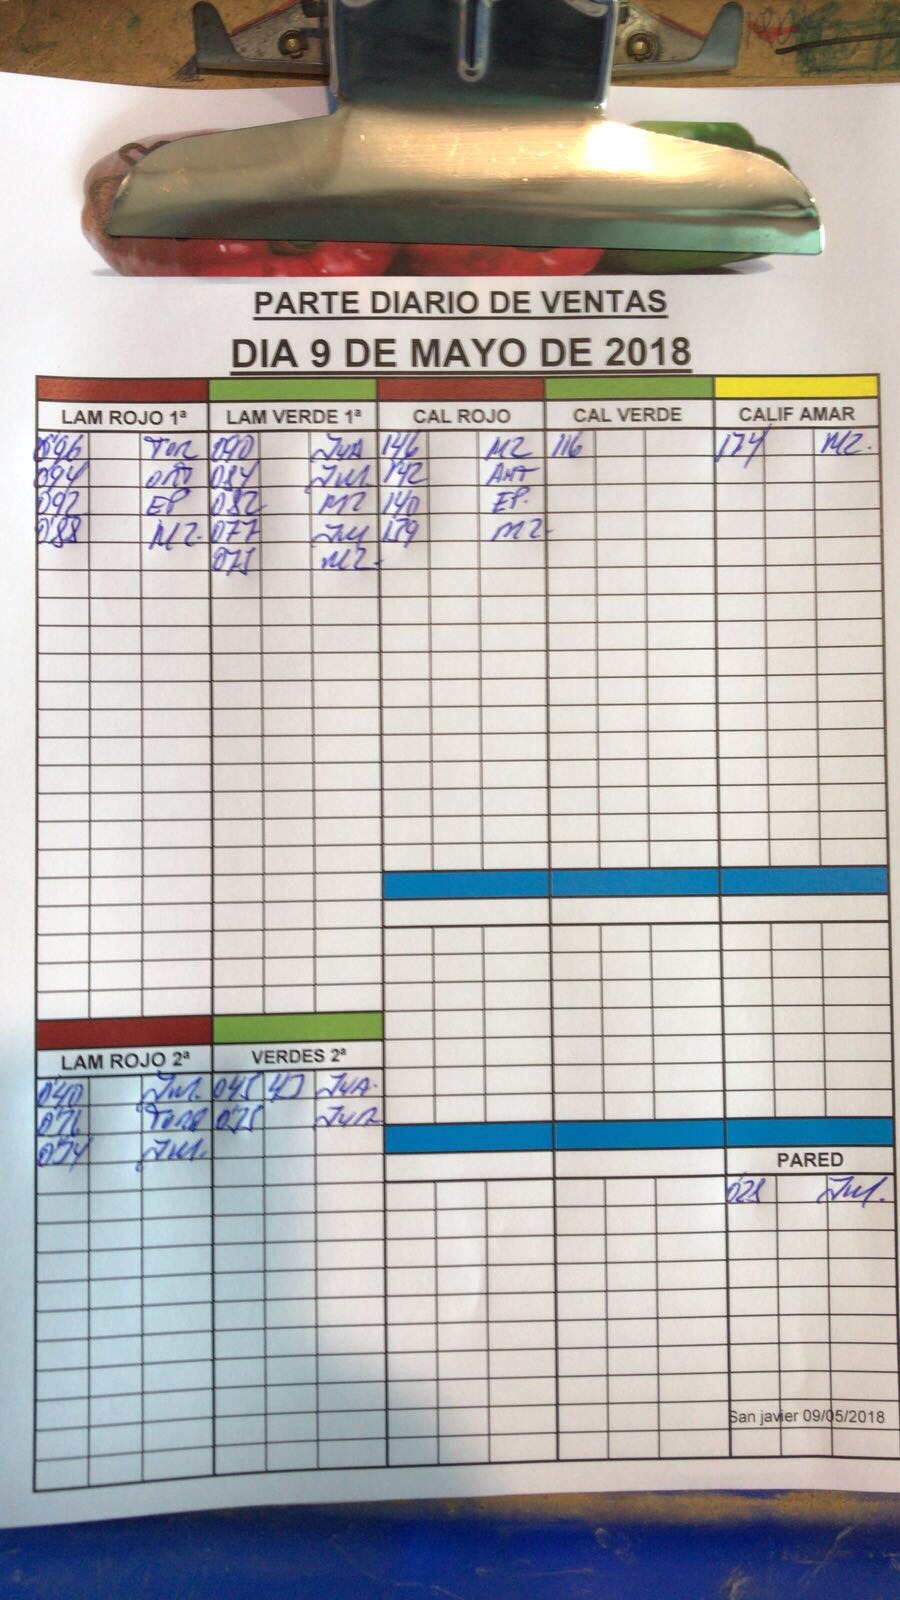 PARTE DIARIO DE VENTAS
DIA 9 DE MAYO DE 2018
LAM ROJO 1ª LAM VERDE 1ª CAL ROJO CAL VERDE CALIF AMAR
0'96 TOR 0'90 JUA 1'46 MZ 1'16 1'74 MZ.
0'94 0'84 JUL 1'42 ANT
0'92 EP 0'82 MZ 1'40 EP.
0'88 MZ. 0'77 JUL 1'39 MZ.
0'75 MZ.
LAM ROJO 2ª VERDES 2ª
0'40 JUL. 0'45 47 JUA.
0'76 0'75
0'74 JUL.
PARED
JUL.
San javier 09/05/2018